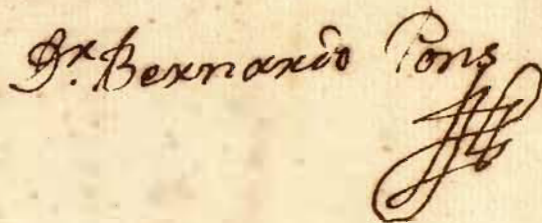 Dr. Bernardo Pons